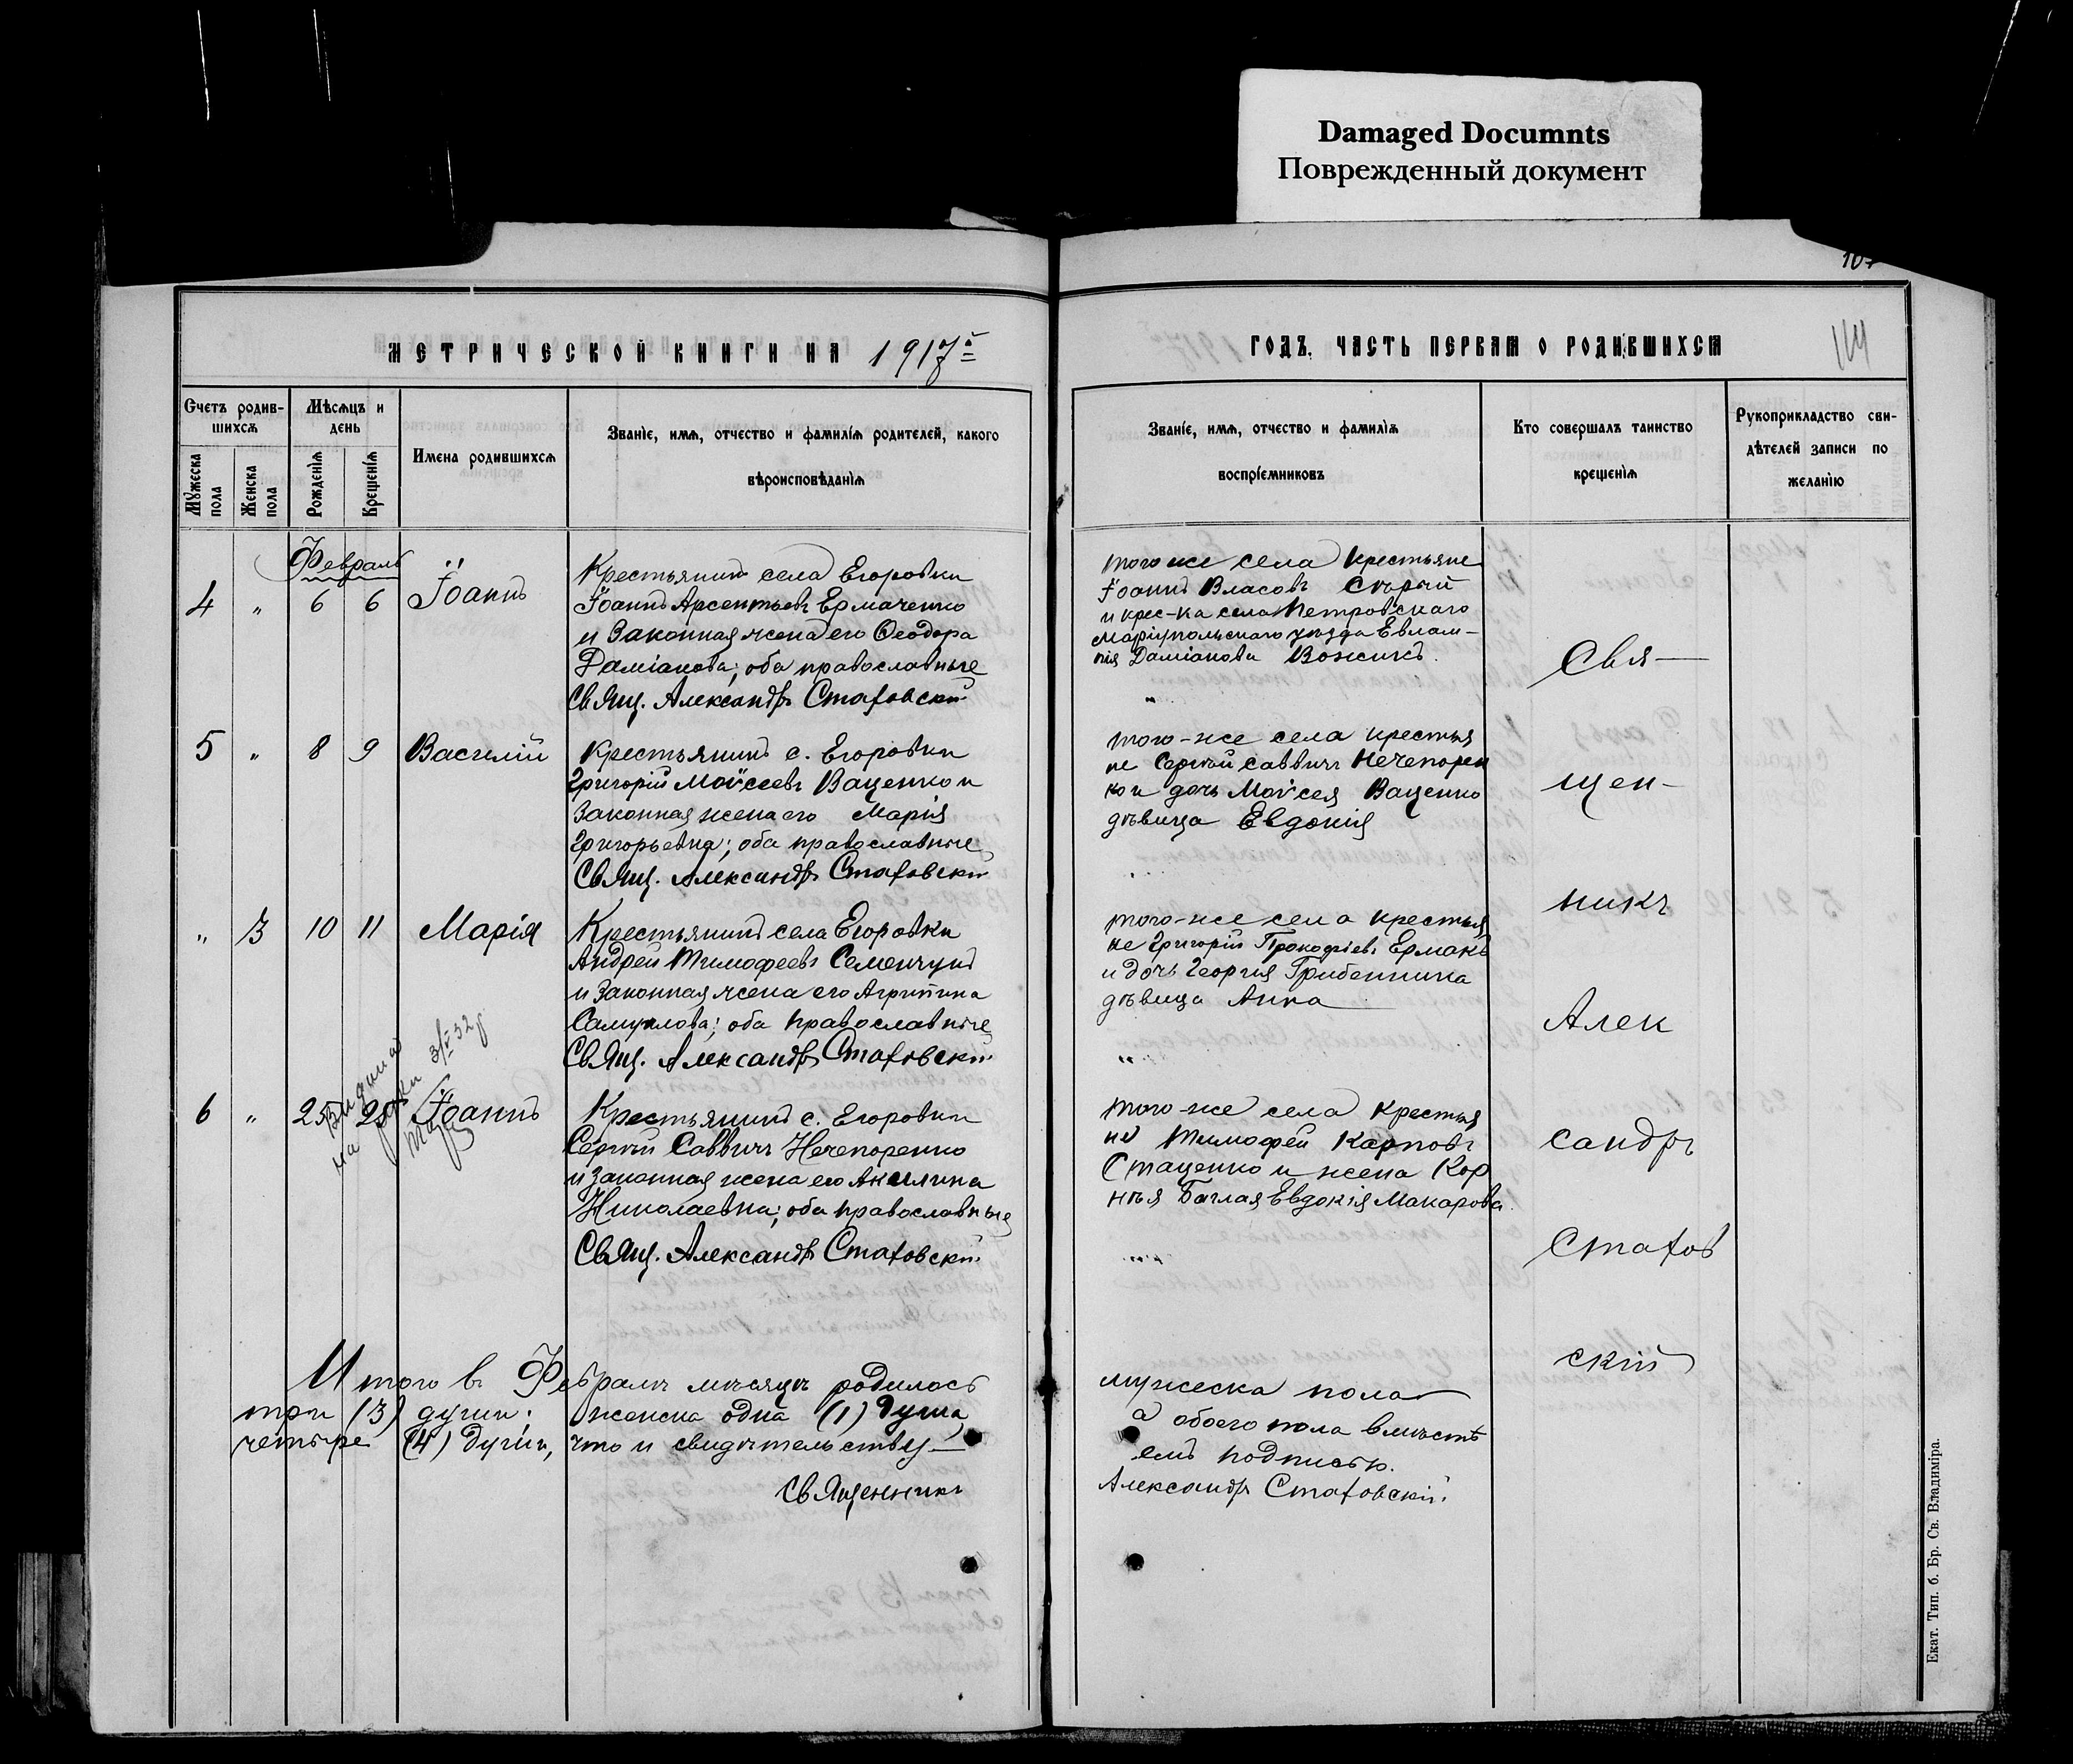 Damaged Documnts
Поврежденный документ
107
МЕТРИЧЕСКОЙ КНИГИ НА 1917й
ГОДЪ, ЧАСТЬ ПЕРВАЯ О РОДИВШИХСЯ
114
Счетъ родив-
шихся
Мужеска
пола
Женска
пола
Мѣсяцъ и
день
Рожденія
Крещенія
Имена родившихся
Званіе, имя, отчество и фамилія родителей, какого
вѣроисповѣданія
Званіе, имя, отчество и фамилія
воспріемниковъ
Кто совершалъ таинство
крещенія
Рукоприкладство сви-
дѣтелей записи по
желанію
Февраль
4 " 6 6 Іоаннъ
Крестьянинъ села Егоровки
Іоаннъ Арсентьевъ Ермаченко
и законная жена его Ѳеодора
Даміанова; оба православные
Свящ. Александръ Стаховскій
того же села крестьяне
Іоаннъ Власовъ Сѣрый
и крес-ка села Петровскаго
Маріупольскаго уѣзда Евлам-
пія Даміанова Вожикъ.
"
5 " 8 9 Василій
Крестьянинъ с. Егоровки
Григорій Моѵсеевъ Ваценко и
законная жена его Марія
Григорьевна; оба православные
Свящ. Александръ Стаховскій
того-же села крестья
не Сергѣй Саввичъ Нечепорен
ко и дочь Моѵсея Ваценко
дѣвица Евдокія
"
" 3 10 11 Марія
Крестьянинъ села Егоровки
Андрей Тимофеевъ Семенчукъ
и законная жена его Агрипина
Самуилова; оба православные
Свящ. Александръ Стаховскій
того-же села крестья
не Григорій Прокофіевъ Ермакъ
и дочь Георгія Грибенника
дѣвица Анна
"
6 " 25 25 Іоаннъ
3/V 32 г
Крестьянинъ с. Егоровки
Сергѣй Саввичъ Нечепоренко
и законная жена его Акилина
Николаевна; оба православные
Свящ. Александръ Стаховскій
того-же села крестья
не Тимофей Карповъ
Стаценко и жена Кор
нѣя Баглая Евдокія Макарова.
"
Свя-
щен-
никъ
Алек
сандръ
Стахов
скій
Итого въ Февралѣ мѣсяцѣ родилось мужеска пола
три (3) души; женска одна (1) душа, а обоего пола вмѣстѣ
четыре (4) души, что и свидѣтельству-емъ подписью.
Священникъ Александръ Стаховскій.
Екат. Тип. б. Бр. Св. Владиміра.